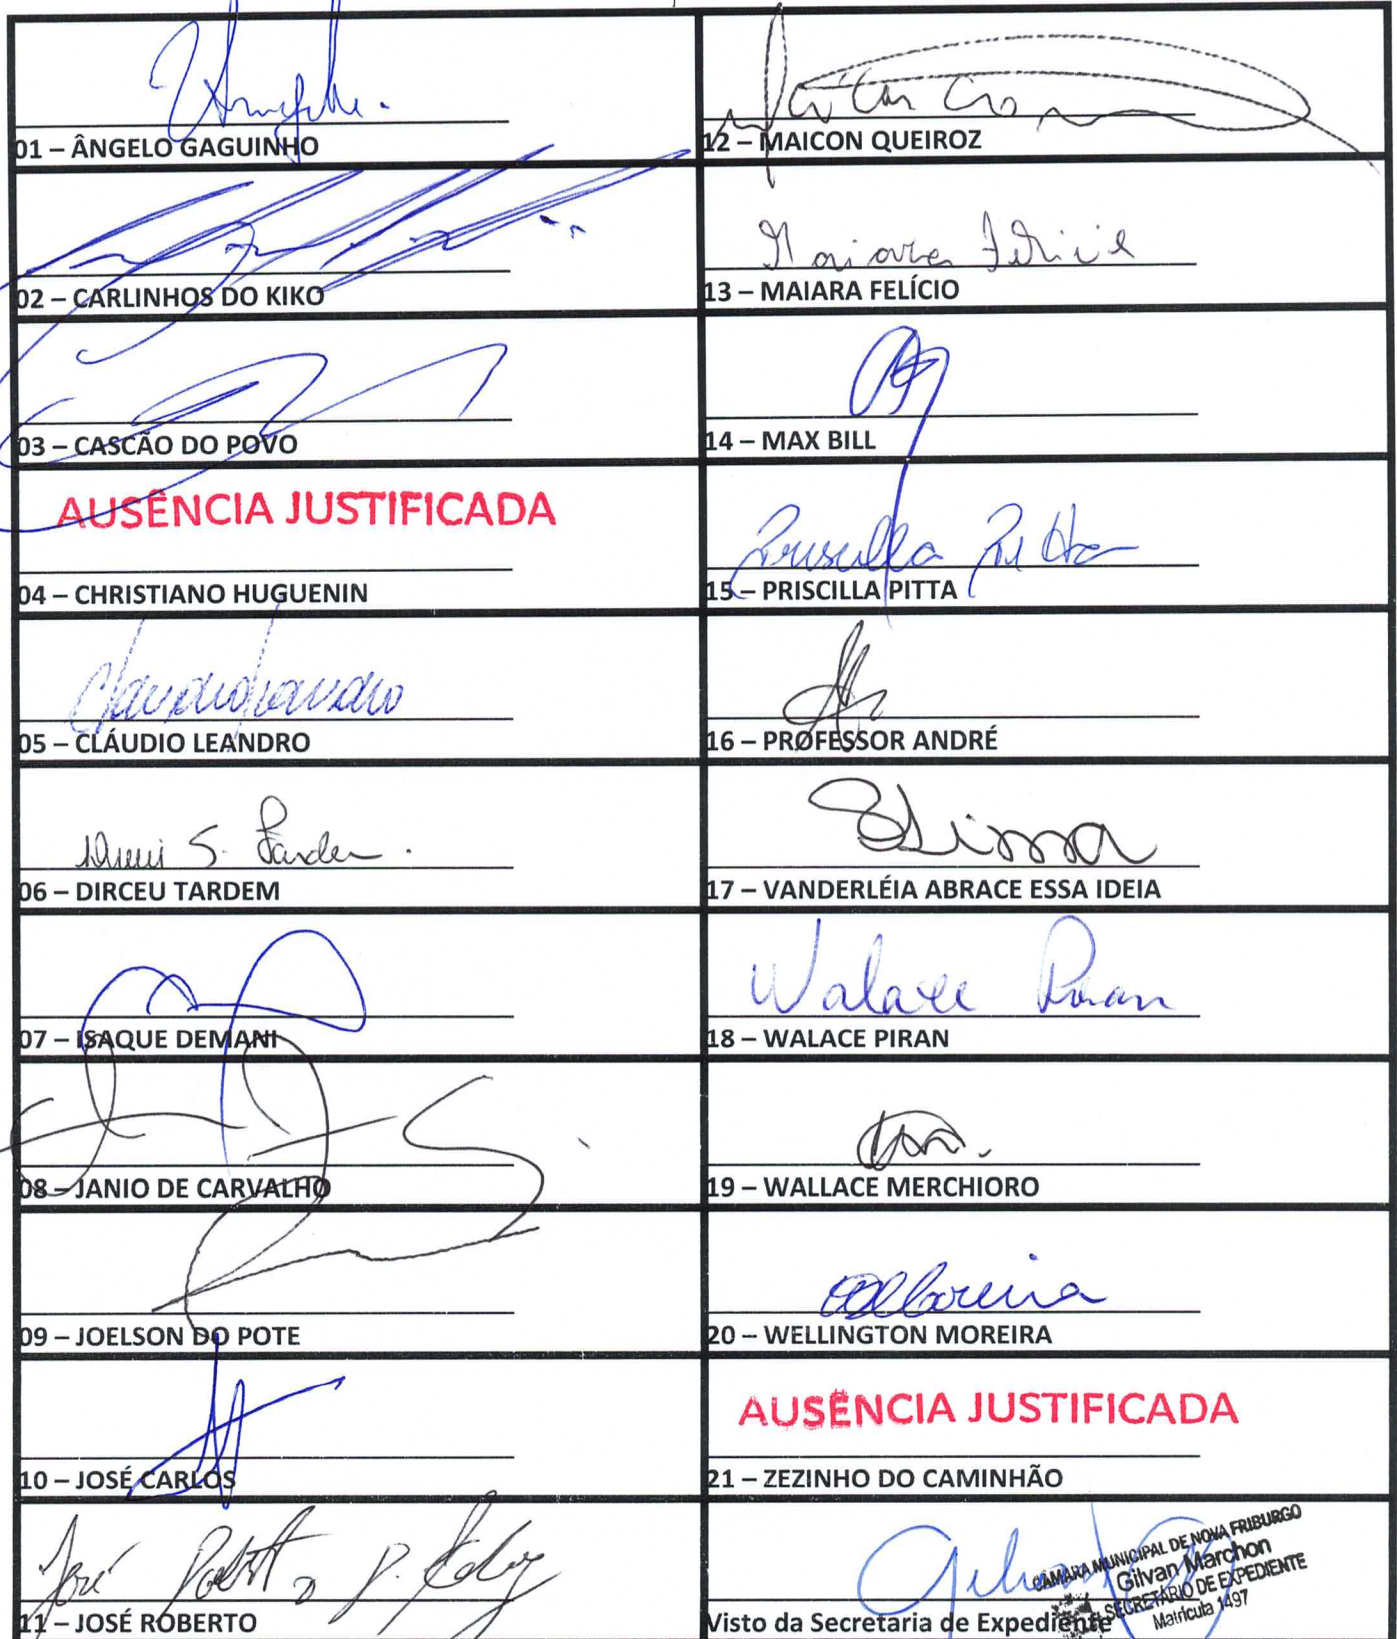 01 – ÂNGELO GAGUINHO
02 – CARLINHOS DO KIKO
03 – CASCÃO DO POVO
AUSÊNCIA JUSTIFICADA
04 – CHRISTIANO HUGUENIN
05 – CLÁUDIO LEANDRO
06 – DIRCEU TARDEM
07 – ISAQUE DEMANI
08 – JANIO DE CARVALHO
09 – JOELSON DO POTE
10 – JOSÉ CARLOS
José
11 – JOSÉ ROBERTO
12 – MAICON QUEIROZ
Maiara Felicio
13 – MAIARA FELÍCIO
14 – MAX BILL
Priscilla Pitta
15 – PRISCILLA PITTA
16 – PROFESSOR ANDRÉ
17 – VANDERLÉIA ABRACE ESSA IDEIA
Walace Piran
18 – WALACE PIRAN
19 – WALLACE MERCHIORO
20 – WELLINGTON MOREIRA
AUSÊNCIA JUSTIFICADA
21 – ZEZINHO DO CAMINHÃO
CÂMARA MUNICIPAL DE NOVA FRIBURGO
Gilvan Marchon
SECRETÁRIO DE EXPEDIENTE
Matrícula 1497
Visto da Secretaria de Expediente